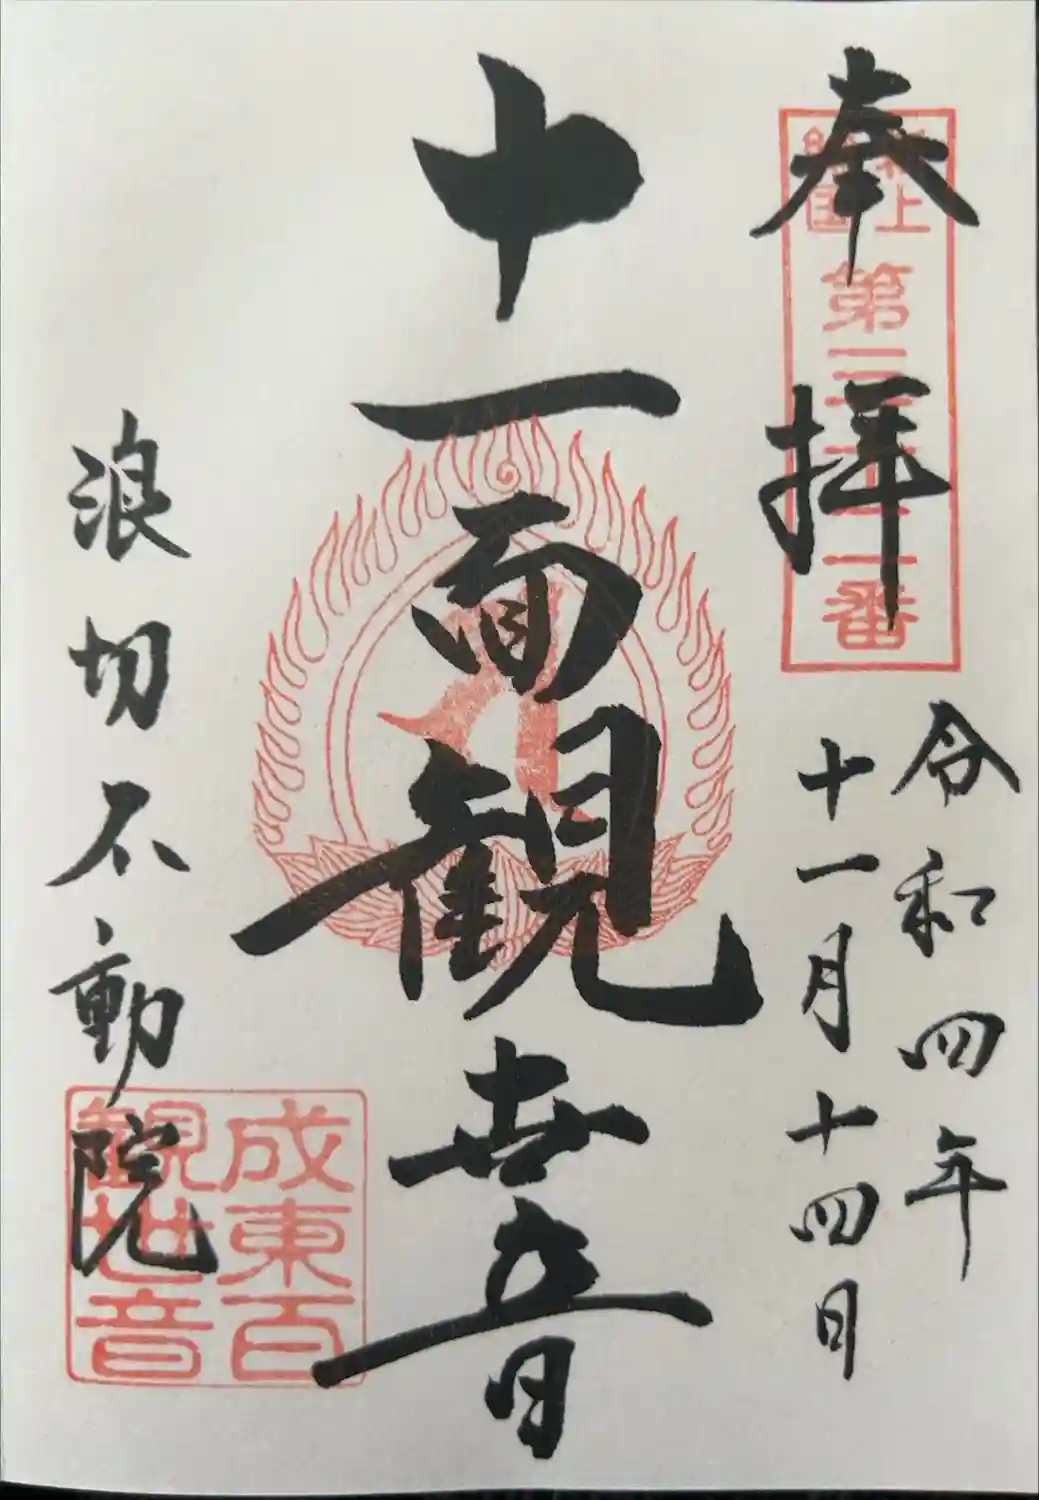 奉拝
新上
総国
令和四年
十一月十四日
十一面観世音
浪切不動院
成東百
観世音